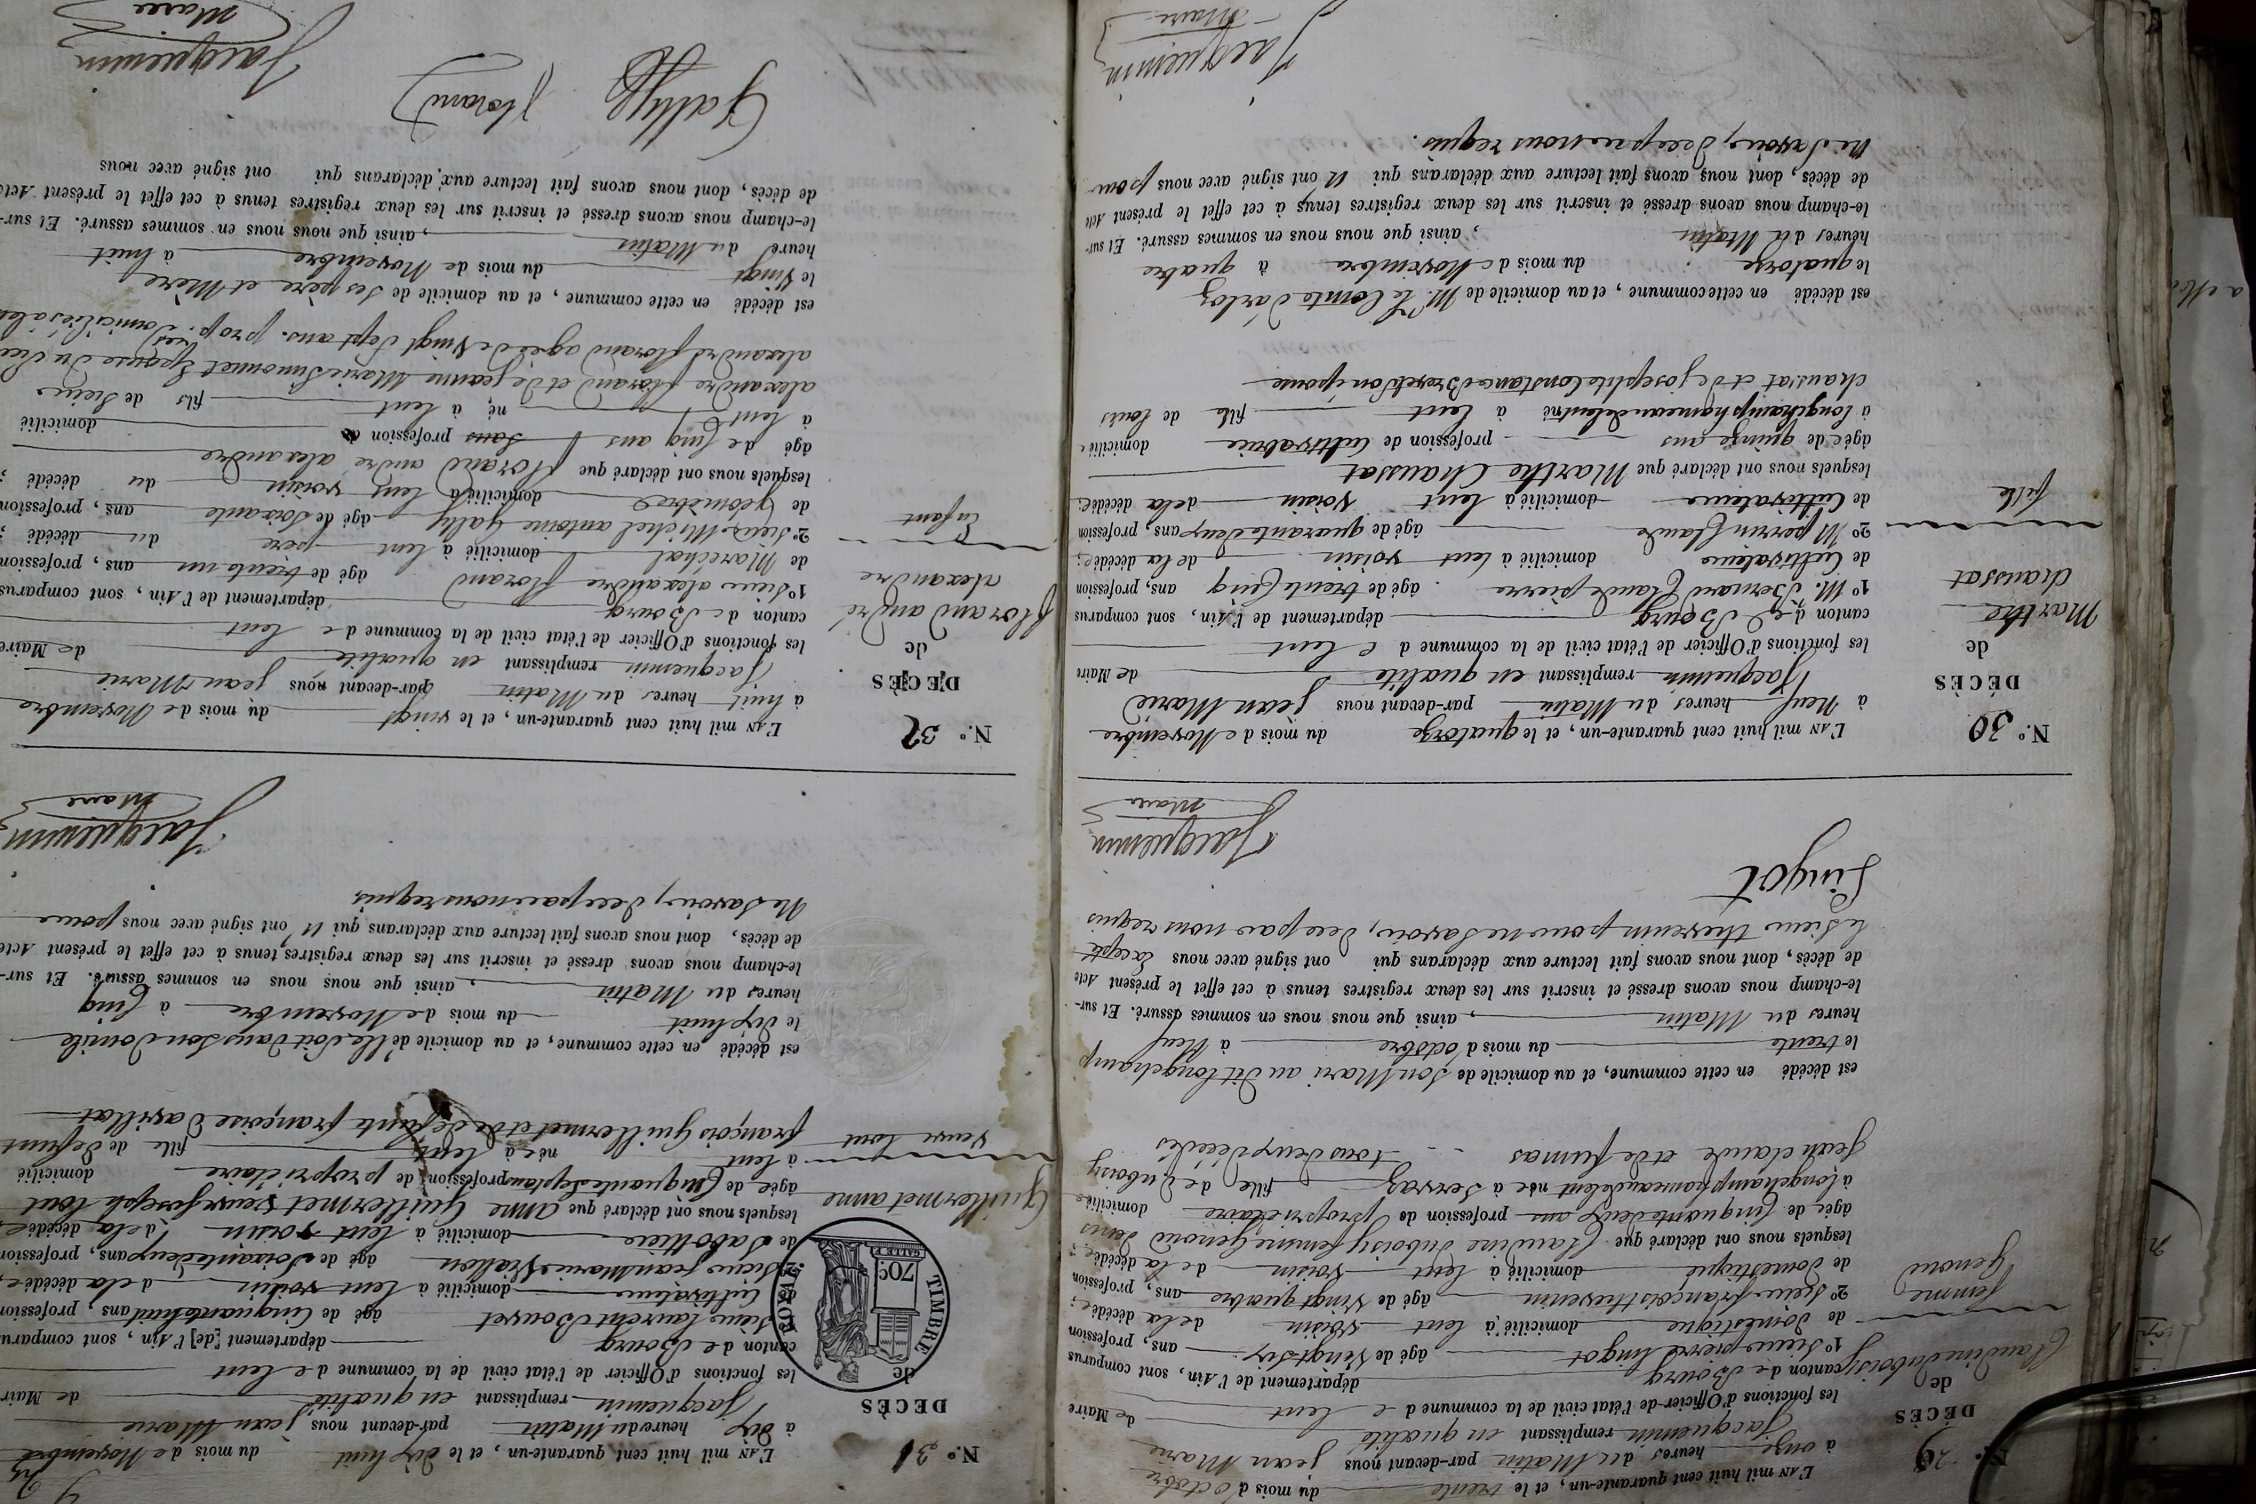 N.° 29
DÉCÈS
de
Claudine duboisy
femme
Genoud
L'AN mil huit cent quarante-un, et le trente du mois d'octobre
à onze heures du Matin par-devant nous jean Marie
Jacquemin remplissant en qualité de Maire
les fonctions d'Officier de l'état civil de la commune de lent
canton de Bourg département de l'Ain, sont comparus
1° Sieur pierre lingot âgé de Vingt Six ans, profession
de Domestique domicilié à lent voisin de la décédée;
2° Sieur françois thevenin âgé de Vingt quatre ans, profession
de domestique domicilié à lent voisin de la décédée;
lesquels nous ont déclaré que Claudine duboisy femme Genoud
âgée de Cinquante deux ans profession de propriétaire domiciliée
à longchamp hameau de lent née à Servaz fille de Duboisy
Jean claude et de fumas tous deux décédés
est décédé en cette commune, et au domicile de Son Mari au dit longchamp
le trente du mois d'octobre à Neuf
heures du Matin, ainsi que nous nous en sommes assuré. Et sur-
le-champ nous avons dressé et inscrit sur les deux registres tenus à cet effet le présent Acte
de décès, dont nous avons fait lecture aux déclarans qui ont signé avec nous Excepté
le Sieur thevenin pour ne Savoir, de ce par nous requis
Lingot
Jacquemin
Maire
N.° 30
DÉCÈS
de
Marthe
chaussat
fille
L'AN mil huit cent quarante-un, et le quatorze du mois de Novembre
à Neuf heures du Matin par-devant nous jean Marie
Jacquemin remplissant en qualité de Maire
les fonctions d'Officier de l'état civil de la commune de lent
canton de Bourg département de l'Ain, sont comparus
1° M. Bernard Claude pierre âgé de trente Cinq ans, profession
de Cultivateur domicilié à lent voisin de la décédée;
2° M perrin Claude âgé de quarante deux ans, profession
de Cultivateur domicilié à lent voisin de la décédée;
lesquels nous ont déclaré que Marthe Chaussat
âgée de quinze ans profession de Cultivatrice domiciliée
à longchamp hameau de lent née à lent fille de louis
chaussat et de josephte Constance Brevet Son épouse
est décédé en cette commune, et au domicile de Mr. le Comte d'arloz
le quatorze du mois de Novembre à quatre
heures du Matin, ainsi que nous nous en sommes assuré. Et sur-
le-champ nous avons dressé et inscrit sur les deux registres tenus à cet effet le présent Acte
de décès, dont nous avons fait lecture aux déclarans qui n'ont signé avec nous pour
Ne Savoir, de ce par nous requis.
Jacquemin
Maire
N.° 31
DÉCÈS
de
TIMBRE ROYAL
70 c
Guillermet anne
veuve tout
L'AN mil huit cent quarante-un, et le dix huit du mois de Novembre
à dix heure du Matin par-devant nous jean Marie
Jacquemin remplissant en qualité de Maire
les fonctions d'Officier de l'état civil de la commune de lent
canton de Bourg département de l'Ain, sont comparus
1° Sieur laurent Bouvet âgé de Cinquante huit ans, profession
de Cultivateur domicilié à lent voisin de la décédée;
2° Sieur jean Marie âgé de Soixante deux ans, profession
de Sabottier domicilié à lent voisin de la décédée;
lesquels nous ont déclaré que anne Guillermet veuve joseph tout
âgée de Cinquante Sept ans profession de propriétaire domicilié
à lent née à lent fille de défunt
françois Guillermet et de défunte françoise
est décédé en cette commune, et au domicile d'elle Soit dans Son Domicile
le dix huit du mois de Novembre à Cinq
heures du Matin, ainsi que nous nous en sommes assuré. Et sur-
le-champ nous avons dressé et inscrit sur les deux registres tenus à cet effet le présent Acte
de décès, dont nous avons fait lecture aux déclarans qui n'ont signé avec nous pour
Ne Savoir, de ce par nous requis
Jacquemin
Maire
N.° 32
DÉCÈS
de
florand andré
alexandre
Enfant
L'AN mil huit cent quarante-un, et le vingt du mois de Novembre
à huit heures du Matin par-devant nous jean Marie
Jacquemin remplissant en qualité de Maire
les fonctions d'Officier de l'état civil de la commune de lent
canton de Bourg département de l'Ain, sont comparus
1° Sieur alexandre florand âgé de trente un ans, profession
de Maréchal domicilié à lent père du décédé;
2° Sieur Michel antoine Gally âgé de Soixante ans, profession
de Géomètre domicilié à lent voisin du décédé;
lesquels nous ont déclaré que florand andré alexandre
âgé de Cinq ans Sans profession domicilié
à lent né à lent fils de Sieur
alexandre florand et de jeanne Marie Simonnet Epouse du Sieur
alexandre florand agée de Vingt Sept ans. prop. res domiciliés à lent
est décédé en cette commune, et au domicile de Ses père et Mère
le Vingt du mois de Novembre à huit
heure du Matin, ainsi que nous nous en sommes assuré. Et sur-
le-champ nous avons dressé et inscrit sur les deux registres tenus à cet effet le présent Acte
de décès, dont nous avons fait lecture aux déclarans qui ont signé avec nous
Gally florand
Jacquemin
Maire